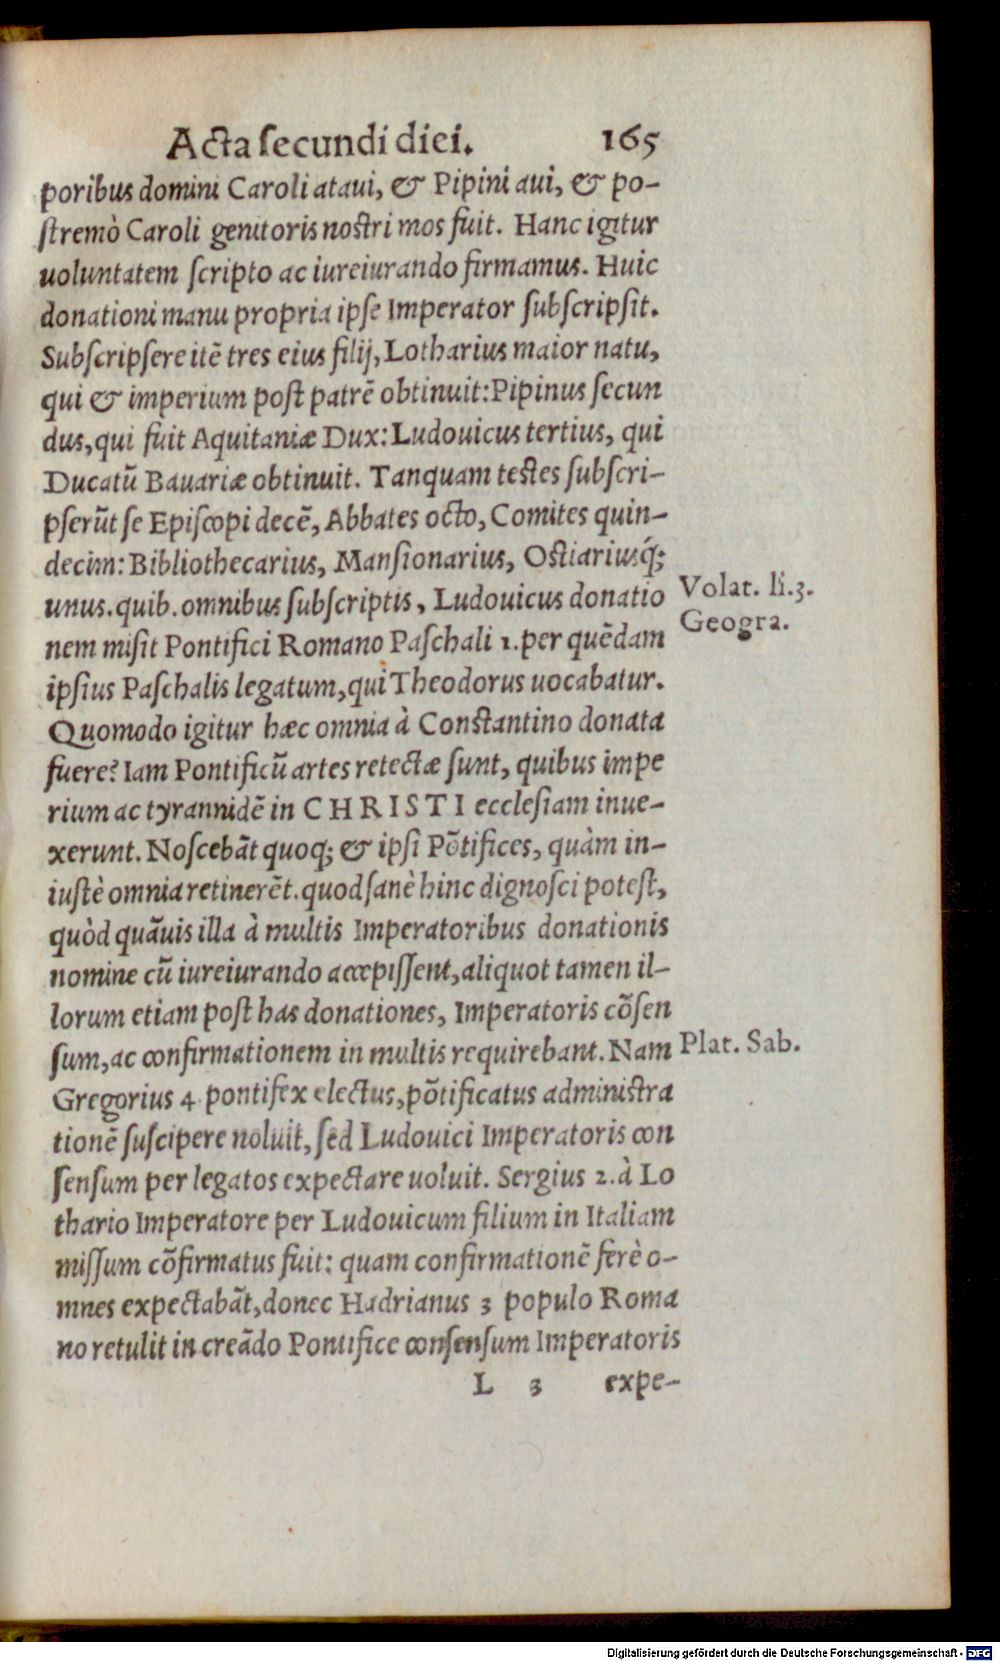 Acta secundi diei. 165
poribus domini Caroli ataui, & Pipini aui, & po-
ſtremò Caroli genitoris noſtri mos fuit. Hanc igitur
uoluntatem ſcripto ac iureiurando firmamus. Huic
donationi manu propria ipſe Imperator ſubſcripſit.
Subſcripſere itē tres eius filij, Lotharius maior natu,
qui & imperium poſt patrē obtinuit: Pipinus ſecun
dus, qui fuit Aquitaniæ Dux: Ludouicus tertius, qui
Ducatū Bauariæ obtinuit. Tanquam teſtes ſubſcri-
pſerūt ſe Epiſcopi decē, Abbates octo, Comites quin-
decim: Bibliothecarius, Manſionarius, Oſtiariusq́;
unus. quib. omnibus ſubſcriptis, Ludouicus donatio
nem miſit Pontifici Romano Paſchali 1. per quēdam
ipſius Paſchalis legatum, qui Theodorus uocabatur.
Quomodo igitur hæc omnia à Conſtantino donata
fuere? Iam Pontificū artes retectæ ſunt, quibus impe
rium ac tyrannidē in CHRISTI eccleſiam inue-
xerunt. Noſcebāt quoq; & ipſi Pōtifices, quàm in-
iuſtè omnia retinerēt. quod ſanè hinc dignoſci poteſt,
quòd quāuis illa à multis Imperatoribus donationis
nomine cū iureiurando accepiſſent, aliquot tamen il-
lorum etiam poſt has donationes, Imperatoris cōſen
ſum, ac confirmationem in multis requirebant. Nam
Gregorius 4. pontifex electus, pōtificatus adminiſtra
tionē ſuſcipere noluit, ſed Ludouici Imperatoris con
ſenſum per legatos expectare uoluit. Sergius 2. à Lo
thario Imperatore per Ludouicum filium in Italiam
miſſum cōfirmatus fuit: quam confirmationē ferè o-
mnes expectabāt, donec Hadrianus 3 populo Roma
no retulit in creādo Pontifice conſenſum Imperatoris
L 3 expe-
Volat. li. 3.
Geogra.
Plat. Sab.
Digitalisierung gefördert durch die Deutsche Forschungsgemeinschaft - DFG